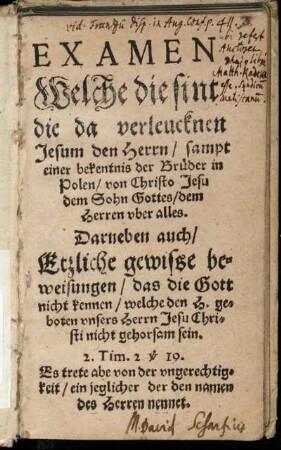 vid. Frantzij Disp. in Aug. Conf. p. 411.
EXAMEN
Welche die sint
die da verleucknen
Jesum den Herrn / sampt
einer bekentnis der Brüder in
Polen / von Christo Jesu
dem Sohn Gottes / dem
Herren vber alles.
Darneben auch /
Etzliche gewisse be-
weisungen / das die Gott
nicht kennen / welche den H. ge-
boten vnsers Herrn Jesu Chri-
sti nicht gehorsam sein.
2. Tim. 2 ỳ 19.
Es trete abe von der vngerechtig-
keit / ein jeglicher der den namen
des Herren nennet.
M. David